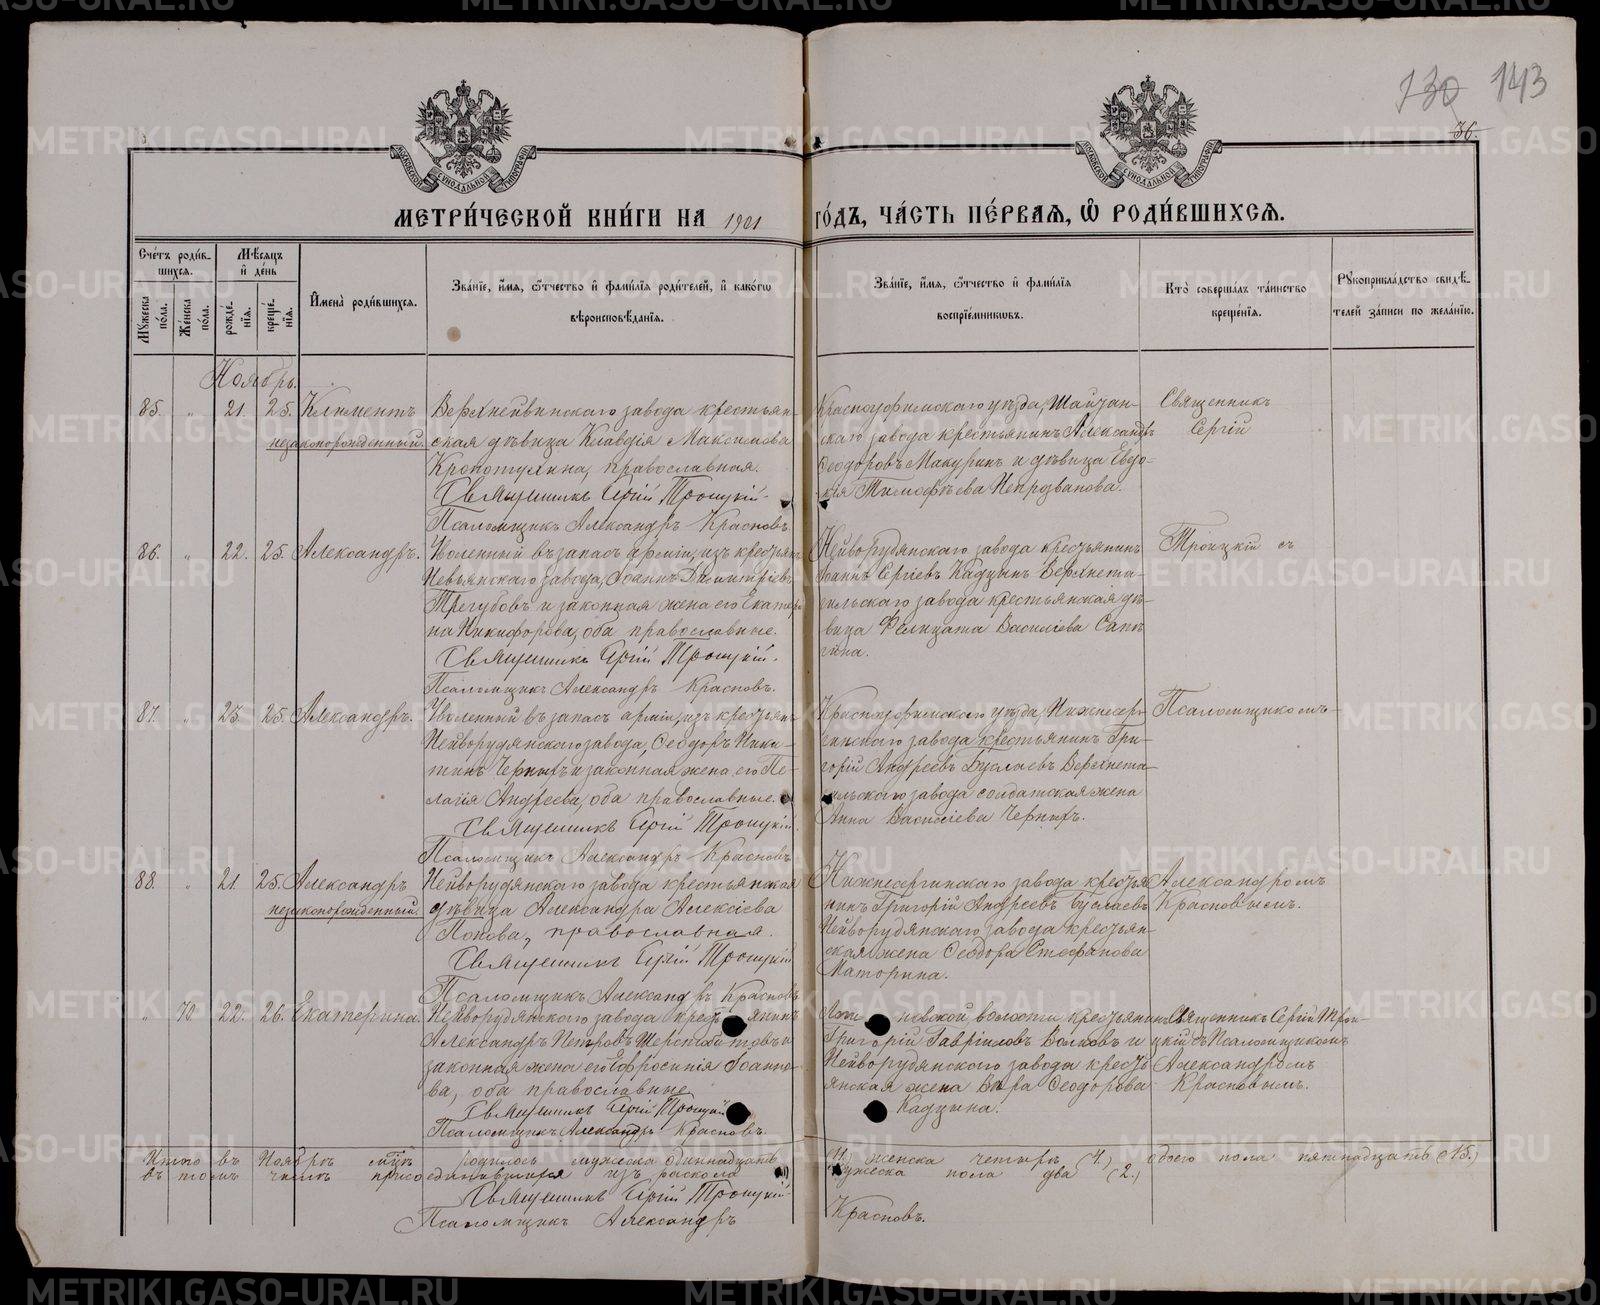 130 143
36.
МОСКОВСКОЙ СУНОДАЛЬНОЙ ТИПОГРАФІИ
МОСКОВСКОЙ СУНОДАЛЬНОЙ ТИПОГРАФІИ
МЕТРИ́ЧЕСКОЙ КНИ́ГИ НА 1901 ГО́ДЪ, ЧА́СТЬ ПЕ́РВАЯ, Ѽ РОДИ́ВШИХСЯ.
Сче́тъ роди́вшихся.
Мꙋжеска по́ла.
Же́нска по́ла.
Мѣ́сяцъ и҆ де́нь
рожде́нїя.
креще́нїя.
И҆мена̀ роди́вшихся.
Зва́нїе, и҆́мя, ѻ҆́тчество и҆ фамі́лїя роди́телей, и҆ како́гѡ вѣроисповѣ́данїя.
Зва́нїе, и҆́мя, ѻ҆́тчество и҆ фамі́лїя воспрїе́мникѡвъ.
Кто̀ соверша́лъ та́инство креще́нїя.
Рꙋкоприкла́дство свидѣ́телей за́писи по жела́нїю.
Ноябрь.
85. " 21. 25. Климентъ
незаконорожденный.
Верхнейвинскаго завода крестьян-
ская дѣвица Клавдія Максимова
Кропотухина, православная.
Священникъ Сергій Троицкій.
Псаломщикъ Александръ Красновъ.
Красноуфимскаго уѣзда, Шайтан-
скаго завода крестьянинъ Александръ
Ѳеодоровъ Макуринъ и дѣвица Евдо-
кія Тимофѣева Непрозванова.
Священникъ
Сергій
86. " 22. 25. Александръ.
Уволенный въ запасъ арміи, изъ крестьянъ
Невьянскаго завода, Іоаннъ Димитріевъ
Трегубовъ и законная жена его Екатери-
на Никифорова, оба православные.
Священникъ Сергій Троицкій.
Псаломщикъ Александръ Красновъ.
Нейворудянскаго завода крестьянинъ
Іоаннъ Сергіевъ Кадцынъ Верхнета-
гильскаго завода крестьянская дѣ-
вица Фелицата Василіева Сапе-
гина.
Троицкій съ
87. " 23. 25. Александръ.
Уволенный въ запасъ арміи, изъ крестьянъ
Нейворудянскаго завода, Ѳеодоръ Ники-
тинъ Черныхъ и законная жена его Пе-
лагія Андреева, оба православные.
Священникъ Сергій Троицкій.
Псаломщикъ Александръ Красновъ.
Красноуфимскаго уѣзда, Нижнесер-
гинскаго завода крестьянинъ Гри-
горій Андреевъ Буслаевъ Верхнета-
гильскаго завода солдатская жена
Анна Василіева Черныхъ.
Псаломщикомъ
88. " 21. 25. Александръ
незаконорожденный.
Нейворудянскаго завода крестьянская
дѣвица Александра Алексіева
Попова, православная.
Священникъ Сергій Троицкій
Псаломщикъ Александръ Красновъ
Нижнесергинскаго завода крестья-
нинъ Григорій Андреевъ Буслаевъ
Нейворудянскаго завода крестьян-
ская жена Ѳеодора Стефанова
Маторина.
Александромъ
Красновымъ.
" 70. 22. 26. Екатерина.
Нейворудянскаго завода крест янинъ
Александръ Петровъ и
законная жена его Ефросинія Іоанно-
ва, оба православные
Священникъ Сергій Троицкій
Псаломщикъ Александръ Красновъ.
новской волости крестьянинъ
Григорій Гавріиловъ Волковъ и
Нейворудянскаго завода кресть-
янская жена Вѣра Ѳеодорова
Кадцына.
Священникъ Сергій Трои-
цкій съ Псаломщикомъ
Александромъ
Красновымъ.
Итого въ Ноябрѣ мцѣ родилось мужеска одиннадцать (11.) женска четыре (4.) обоего пола пятнадцать (15.)
въ томъ числѣ присоединившихся изъ раскола мужеска пола два (2.)
Священникъ Сергій Троицкій
Псаломщикъ Александръ Красновъ.
METRIKI.GASO-URAL.RU